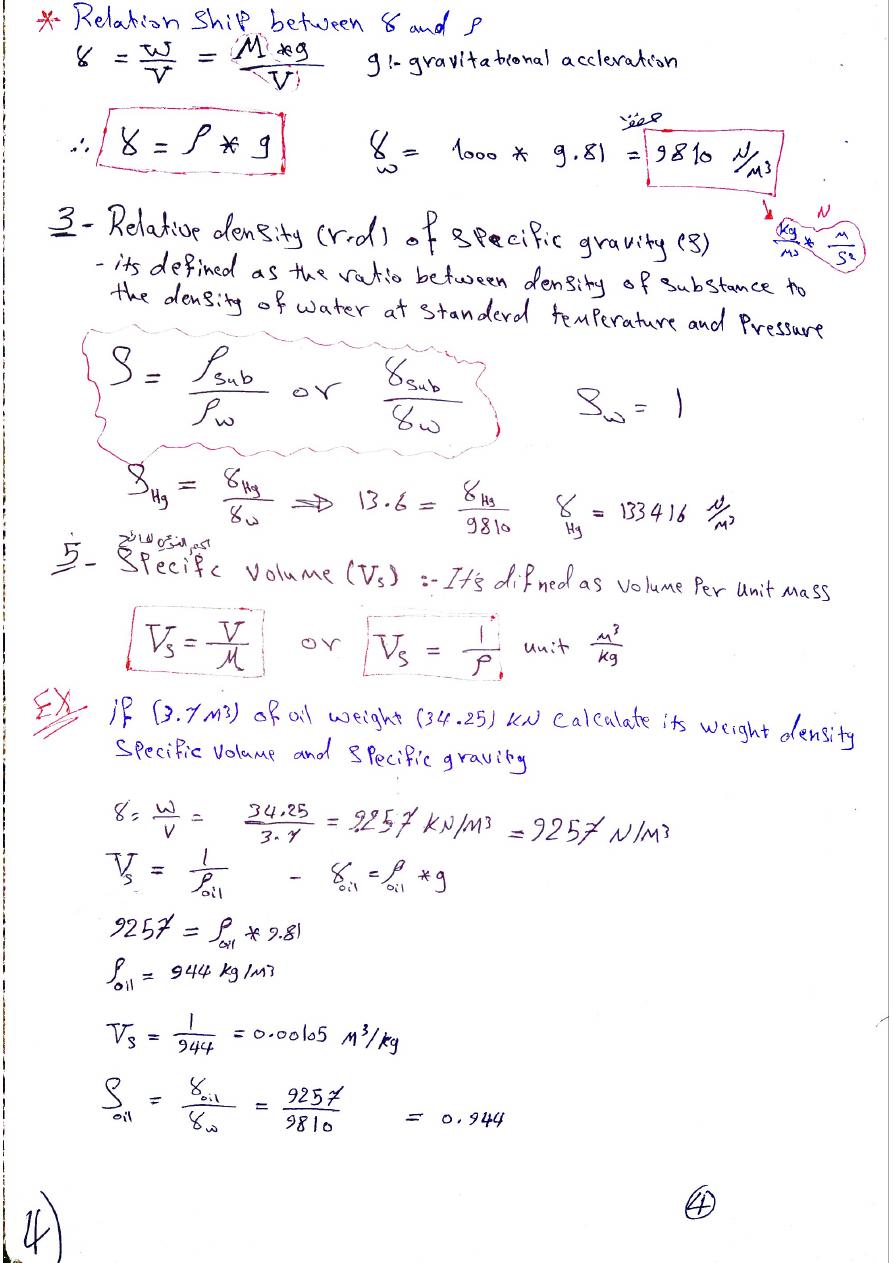 * Relation Ship between γ and ρ
γ = W/V = M*g/V g:- gravitational accleration
∴ γ = ρ * g γw = 1000 * 9.81 = 9810 N/m3
N
kg/m3 * m/s2
3- Relative density (r.d) of specific gravity (S)
- its defined as the ratio between density of substance to
the density of water at standerd temperature and pressure
S = ρsub/ρw or γsub/γw Sw = 1
SHg = γHg/γw ⇒ 13.6 = γHg/9810 γHg = 133416 N/m3
5- Specifc Volume (Vs) :- It's difned as volume per unit mass
Vs = V/M or Vs = 1/ρ unit m3/kg
EX if (3.7 m3) of oil weight (34.25) kN calculate its weight density
specific volume and specific gravity
γ = W/V = 34.25/3.7 = 9.257 KN/m3 = 9257 N/m3
Vs = 1/ρoil - γoil = ρoil * g
9257 = ρoil * 9.81
ρoil = 944 kg/m3
Vs = 1/944 = 0.00105 m3/kg
Soil = γoil/γw = 9257/9810 = 0.944
4
4)